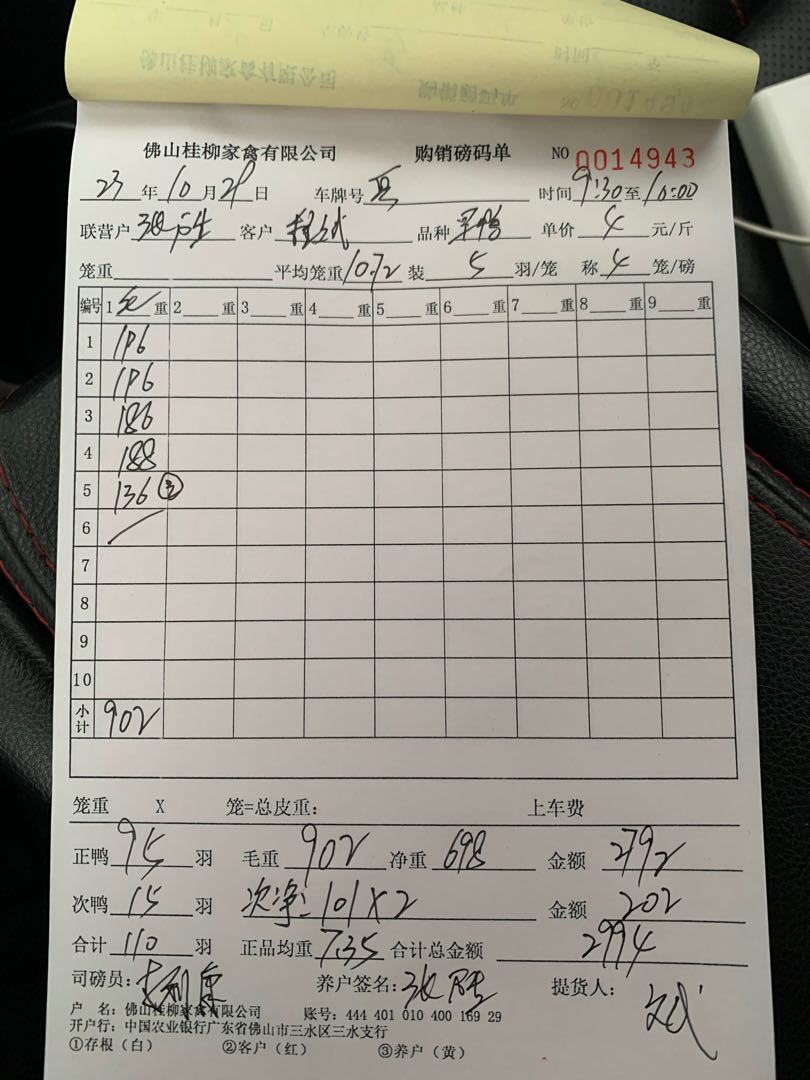 佛山桂柳家禽有限公司 购销磅码单 NO 0014943
23 年 10 月 29 日 车牌号 时间 9:30 至 10:00
联营户 张 客户 品种 单价 4 元/斤
笼重 平均笼重 10.72 装 5 羽/笼 称 4 笼/磅
编号 1 重 2 重 3 重 4 重 5 重 6 重 7 重 8 重 9 重
1 196
2 196
3 186
4 188
5 136 ③
6
7
8
9
10
小计 902
笼重 X 笼=总皮重: 上车费
正鸭 95 羽 毛重 902 净重 698 金额 2792
次鸭 15 羽 次净: 101 X 2 金额 202
合计 110 羽 正品均重 7.35 合计总金额 2994
司磅员: 养户签名: 张 提货人:
户 名: 佛山桂柳家禽有限公司 账号: 444 401 010 400 169 29
开户行: 中国农业银行广东省佛山市三水区三水支行
①存根（白） ②客户（红） ③养户（黄）